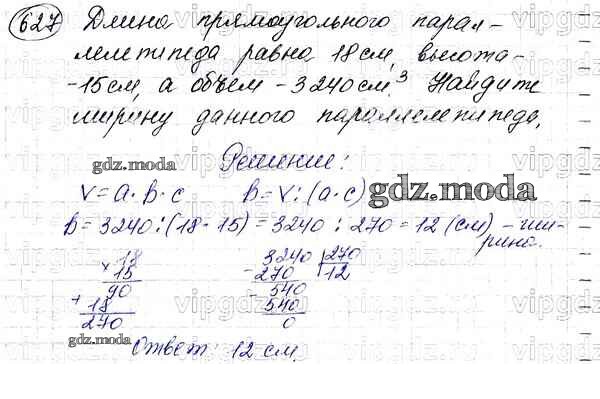 627 Длина прямоугольного парал-
лелепипеда равна 18 см, высота -
- 15 см, а объём - 3240 см.³ Найдите
ширину данного параллелепипеда.
Решение:
gdz.moda
V = a · b · c b = V : (a · c) gdz.moda
b = 3240 : (18 · 15) = 3240 : 270 = 12 (см) - ши-
рина.
× 18
15
90
+ 18
270
3240 270
- 270 12
540
540
0
Ответ: 12 см.